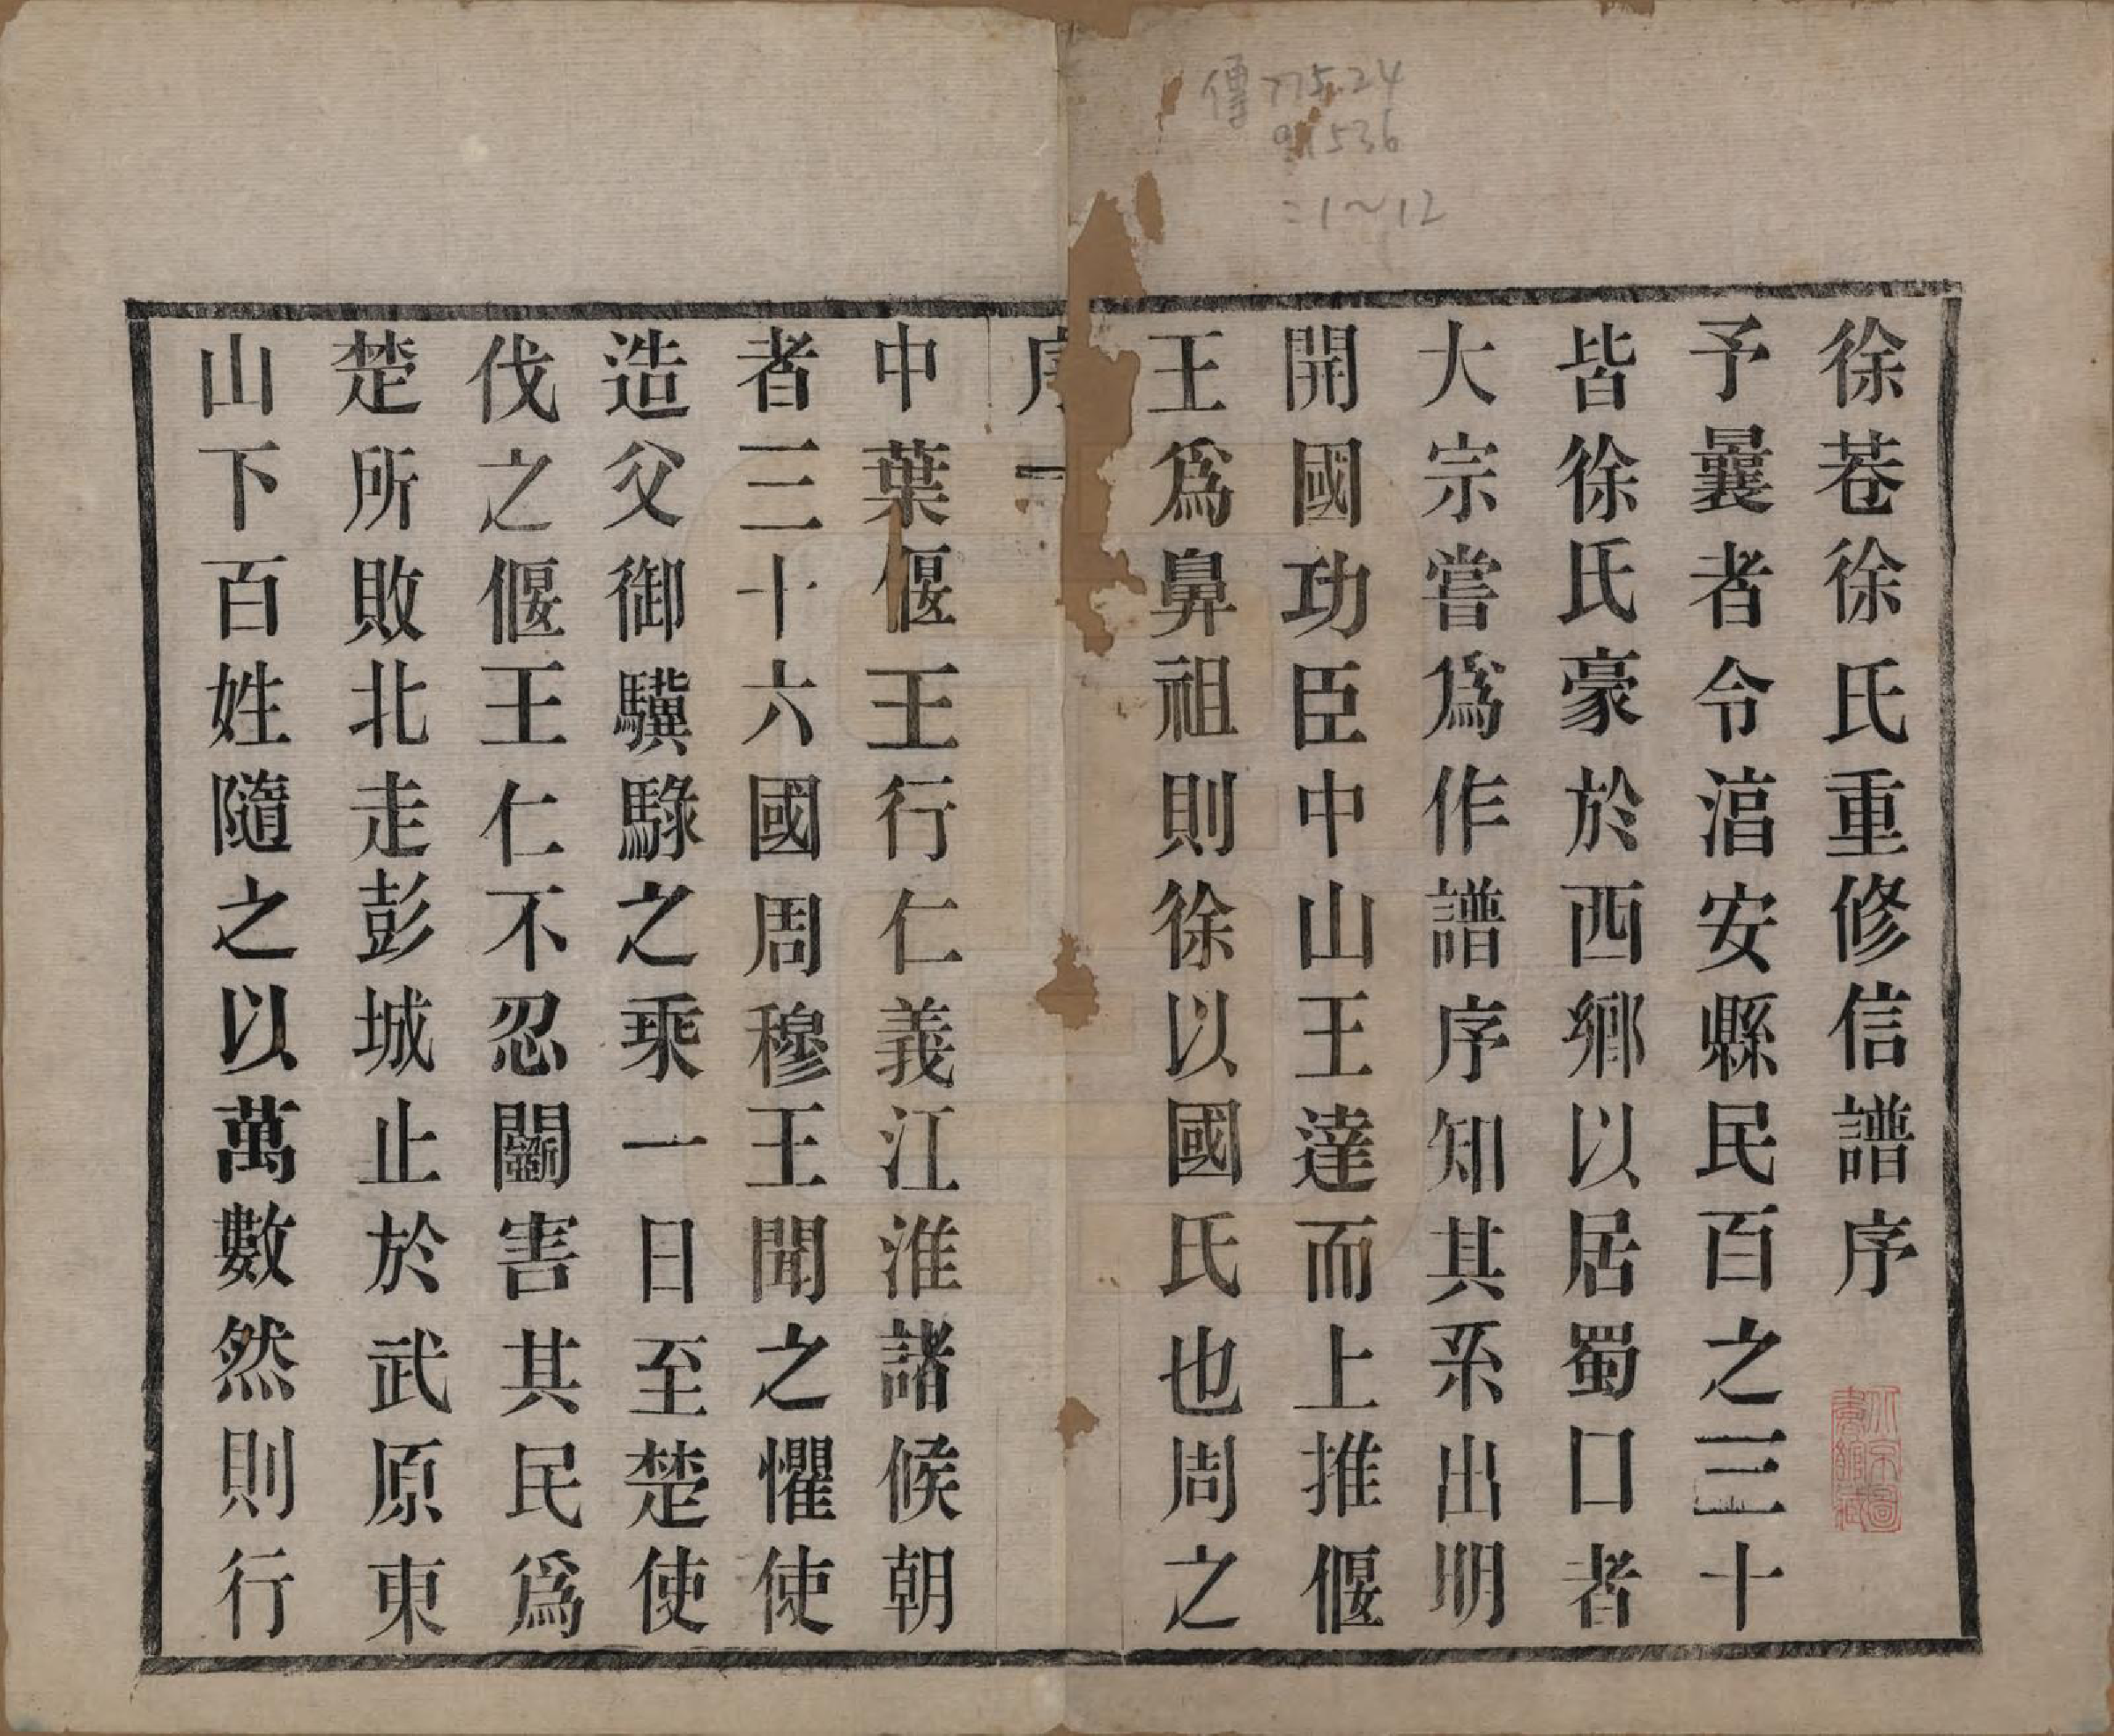 徐巷徐氏重修信譜序
予曩者令湻安縣民百之三十
皆徐氏豪於西鄉以居蜀口者
大宗嘗爲作譜序知其系出明
開國功臣中山王達而上推偃
王爲鼻祖則徐以國氏也周之
序
一
中葉偃王行仁義江淮諸候朝
者三十六國周穆王聞之懼使
造父御驥騄之乘一日至楚使
伐之偃王仁不忍鬬害其民爲
楚所敗北走彭城止於武原東
山下百姓隨之以萬數然則行
775.24
536
=1~12